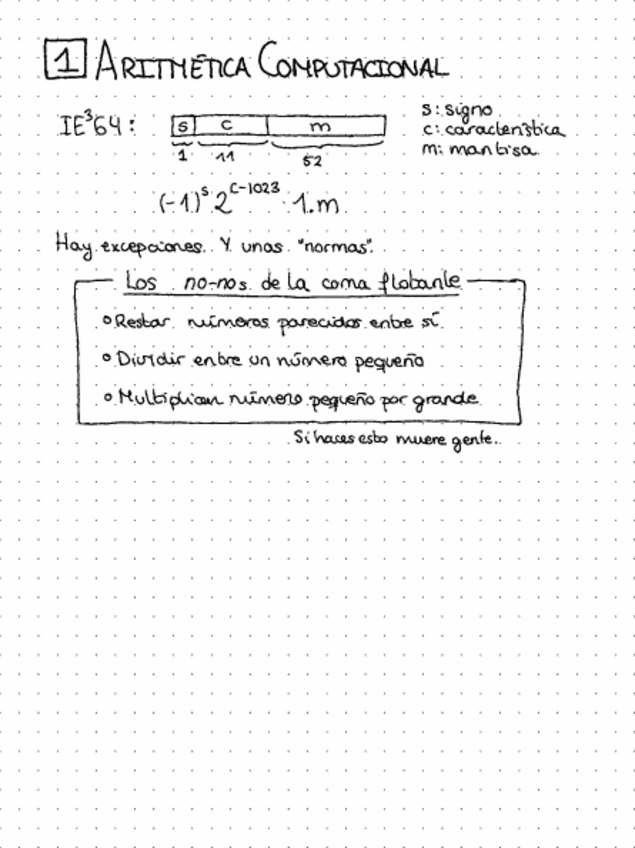 1 ARITMÉTICA COMPUTACIONAL
IE³64: s c m
1 11 52
s: signo
c: característica
m: mantisa
(-1)^s 2^(c-1023) 1.m
Hay excepciones. Y unas "normas".
Los no-nos de la coma flotante
Restar números parecidos entre sí
Dividir entre un número pequeño
Multiplicar número pequeño por grande
Si haces esto muere gente..